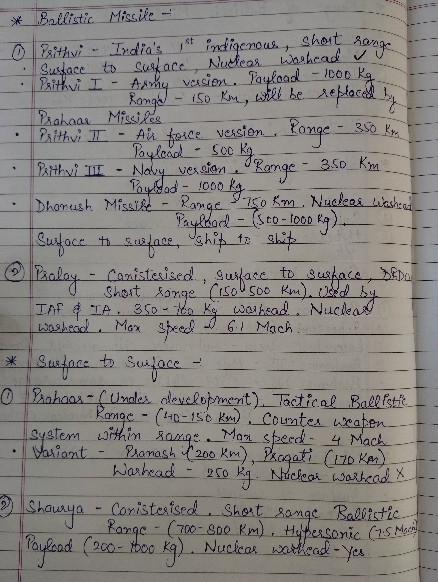 * Ballistic Missile :-
① Prithvi - India's 1st indigenous, short range
• Surface to surface, Nuclear warhead ✓
• Prithvi I - Army version. Payload - 1000 Kg
Range - 150 Km, will be replaced by
Prahaar Missiles
• Prithvi II - Air force version. Range - 350 Km
Payload - 500 Kg
• Prithvi III - Navy version. Range - 350 Km
Payload - 1000 Kg
• Dhanush Missile - Range - 750 Km. Nuclear warhead
Payload - (500-1000 Kg).
Surface to surface, ship to ship
② Pralay - Canisterised, surface to surface, DRDO
Short range (150-500 Km). Used by
IAF & IA. 350-700 Kg warhead. Nuclear
warhead. Max speed - 6.1 Mach.
* Surface to Surface :-
① Prahaar - (Under development). Tactical Ballistic
Range - (40-150 Km). Counter weapon
system within range. Max speed - 4 Mach
• Variant - Pranash (200 Km), Pragati (170 Km)
Warhead - 250 Kg. Nuclear warhead X
② Shaurya - Canisterised. Short range Ballistic
Range - (700-800 Km). Hypersonic (7.5 Mach)
Payload (200-1000 Kg). Nuclear warhead - Yes